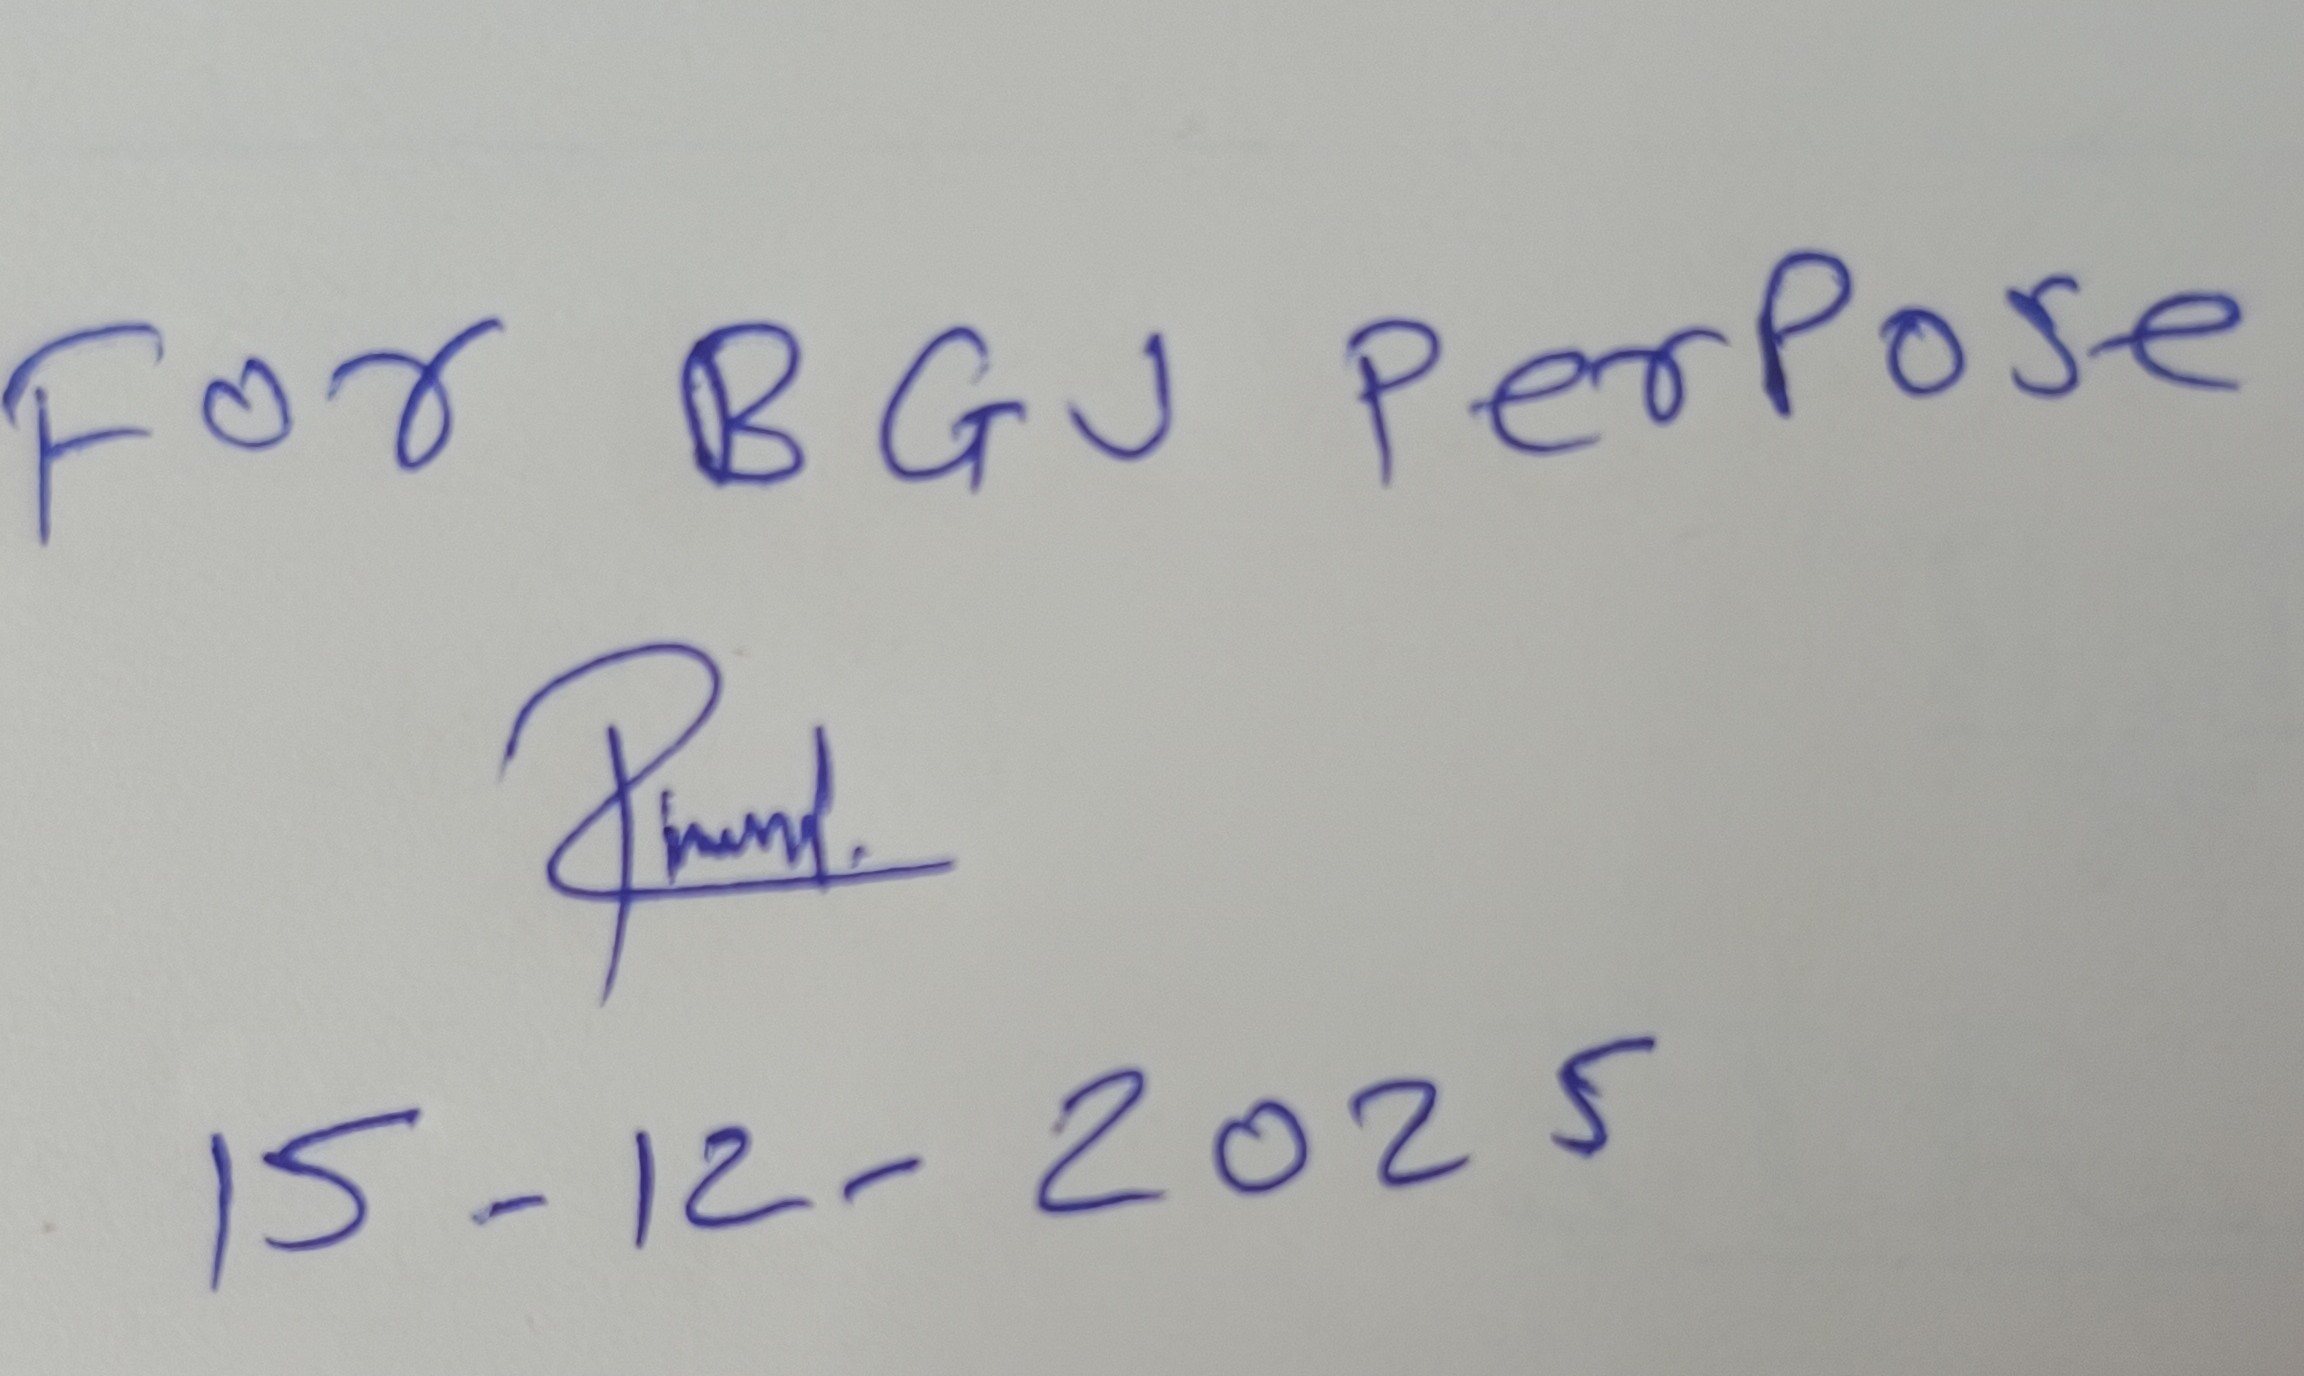 For BGU PerPose
15-12-2025